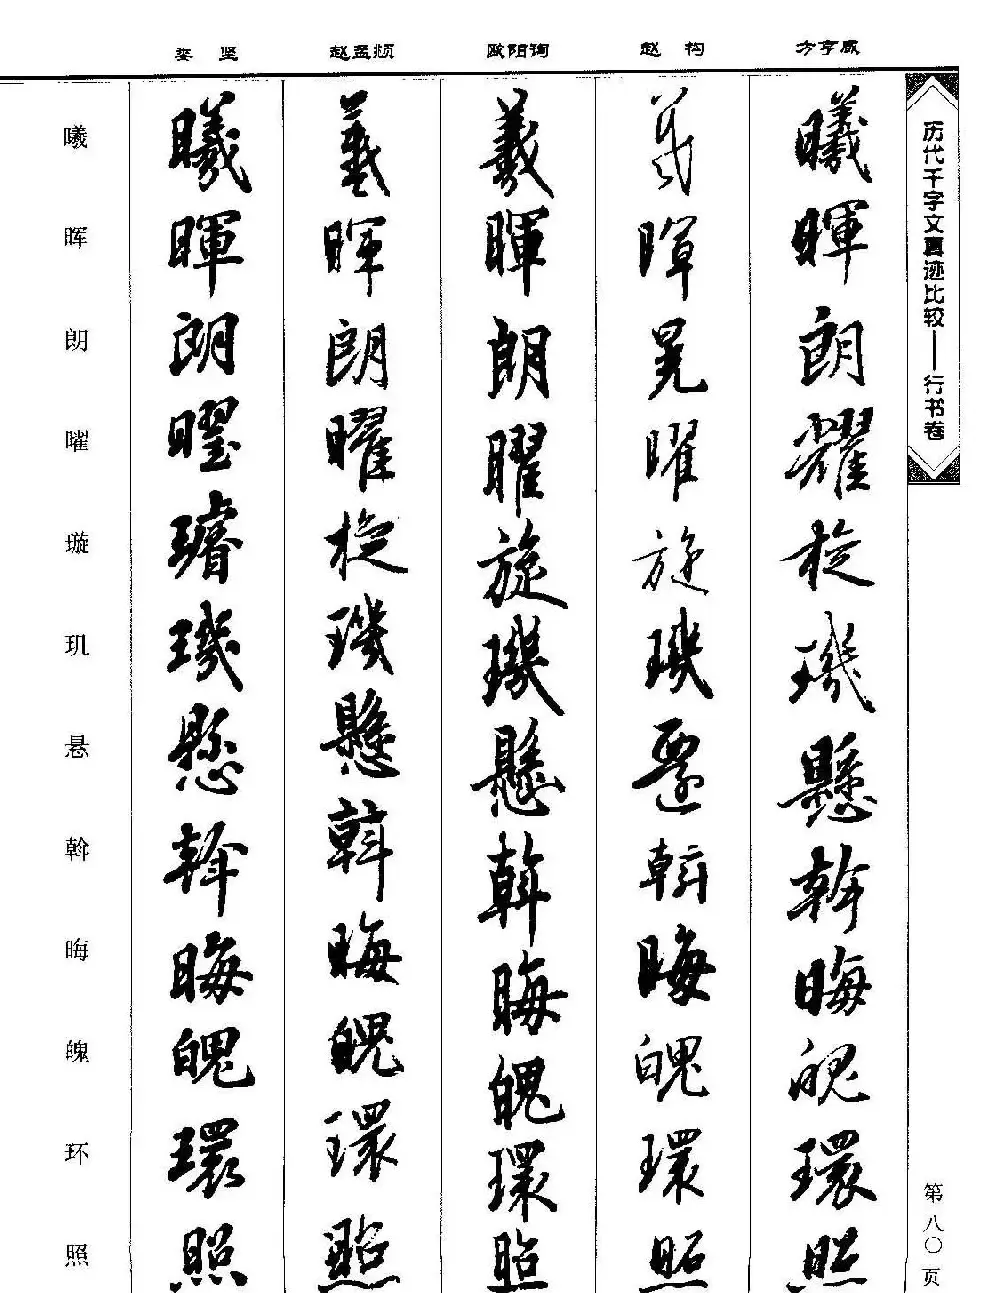 历代千字文真迹比较——行书卷
第八〇页
方亨咸
曦暉朗耀旋璣懸斡晦魄環照
赵构
羲暉晃曜旋璣遷斡晦魄環照
欧阳询
羲暉朗曜旋璣懸斡晦魄環照
赵孟頫
羲暉朗曜旋璣懸斡晦魄環照
娄坚
曦暉朗曜璿璣懸斡晦魄環照
曦晖朗曜璇玑悬斡晦魄环照